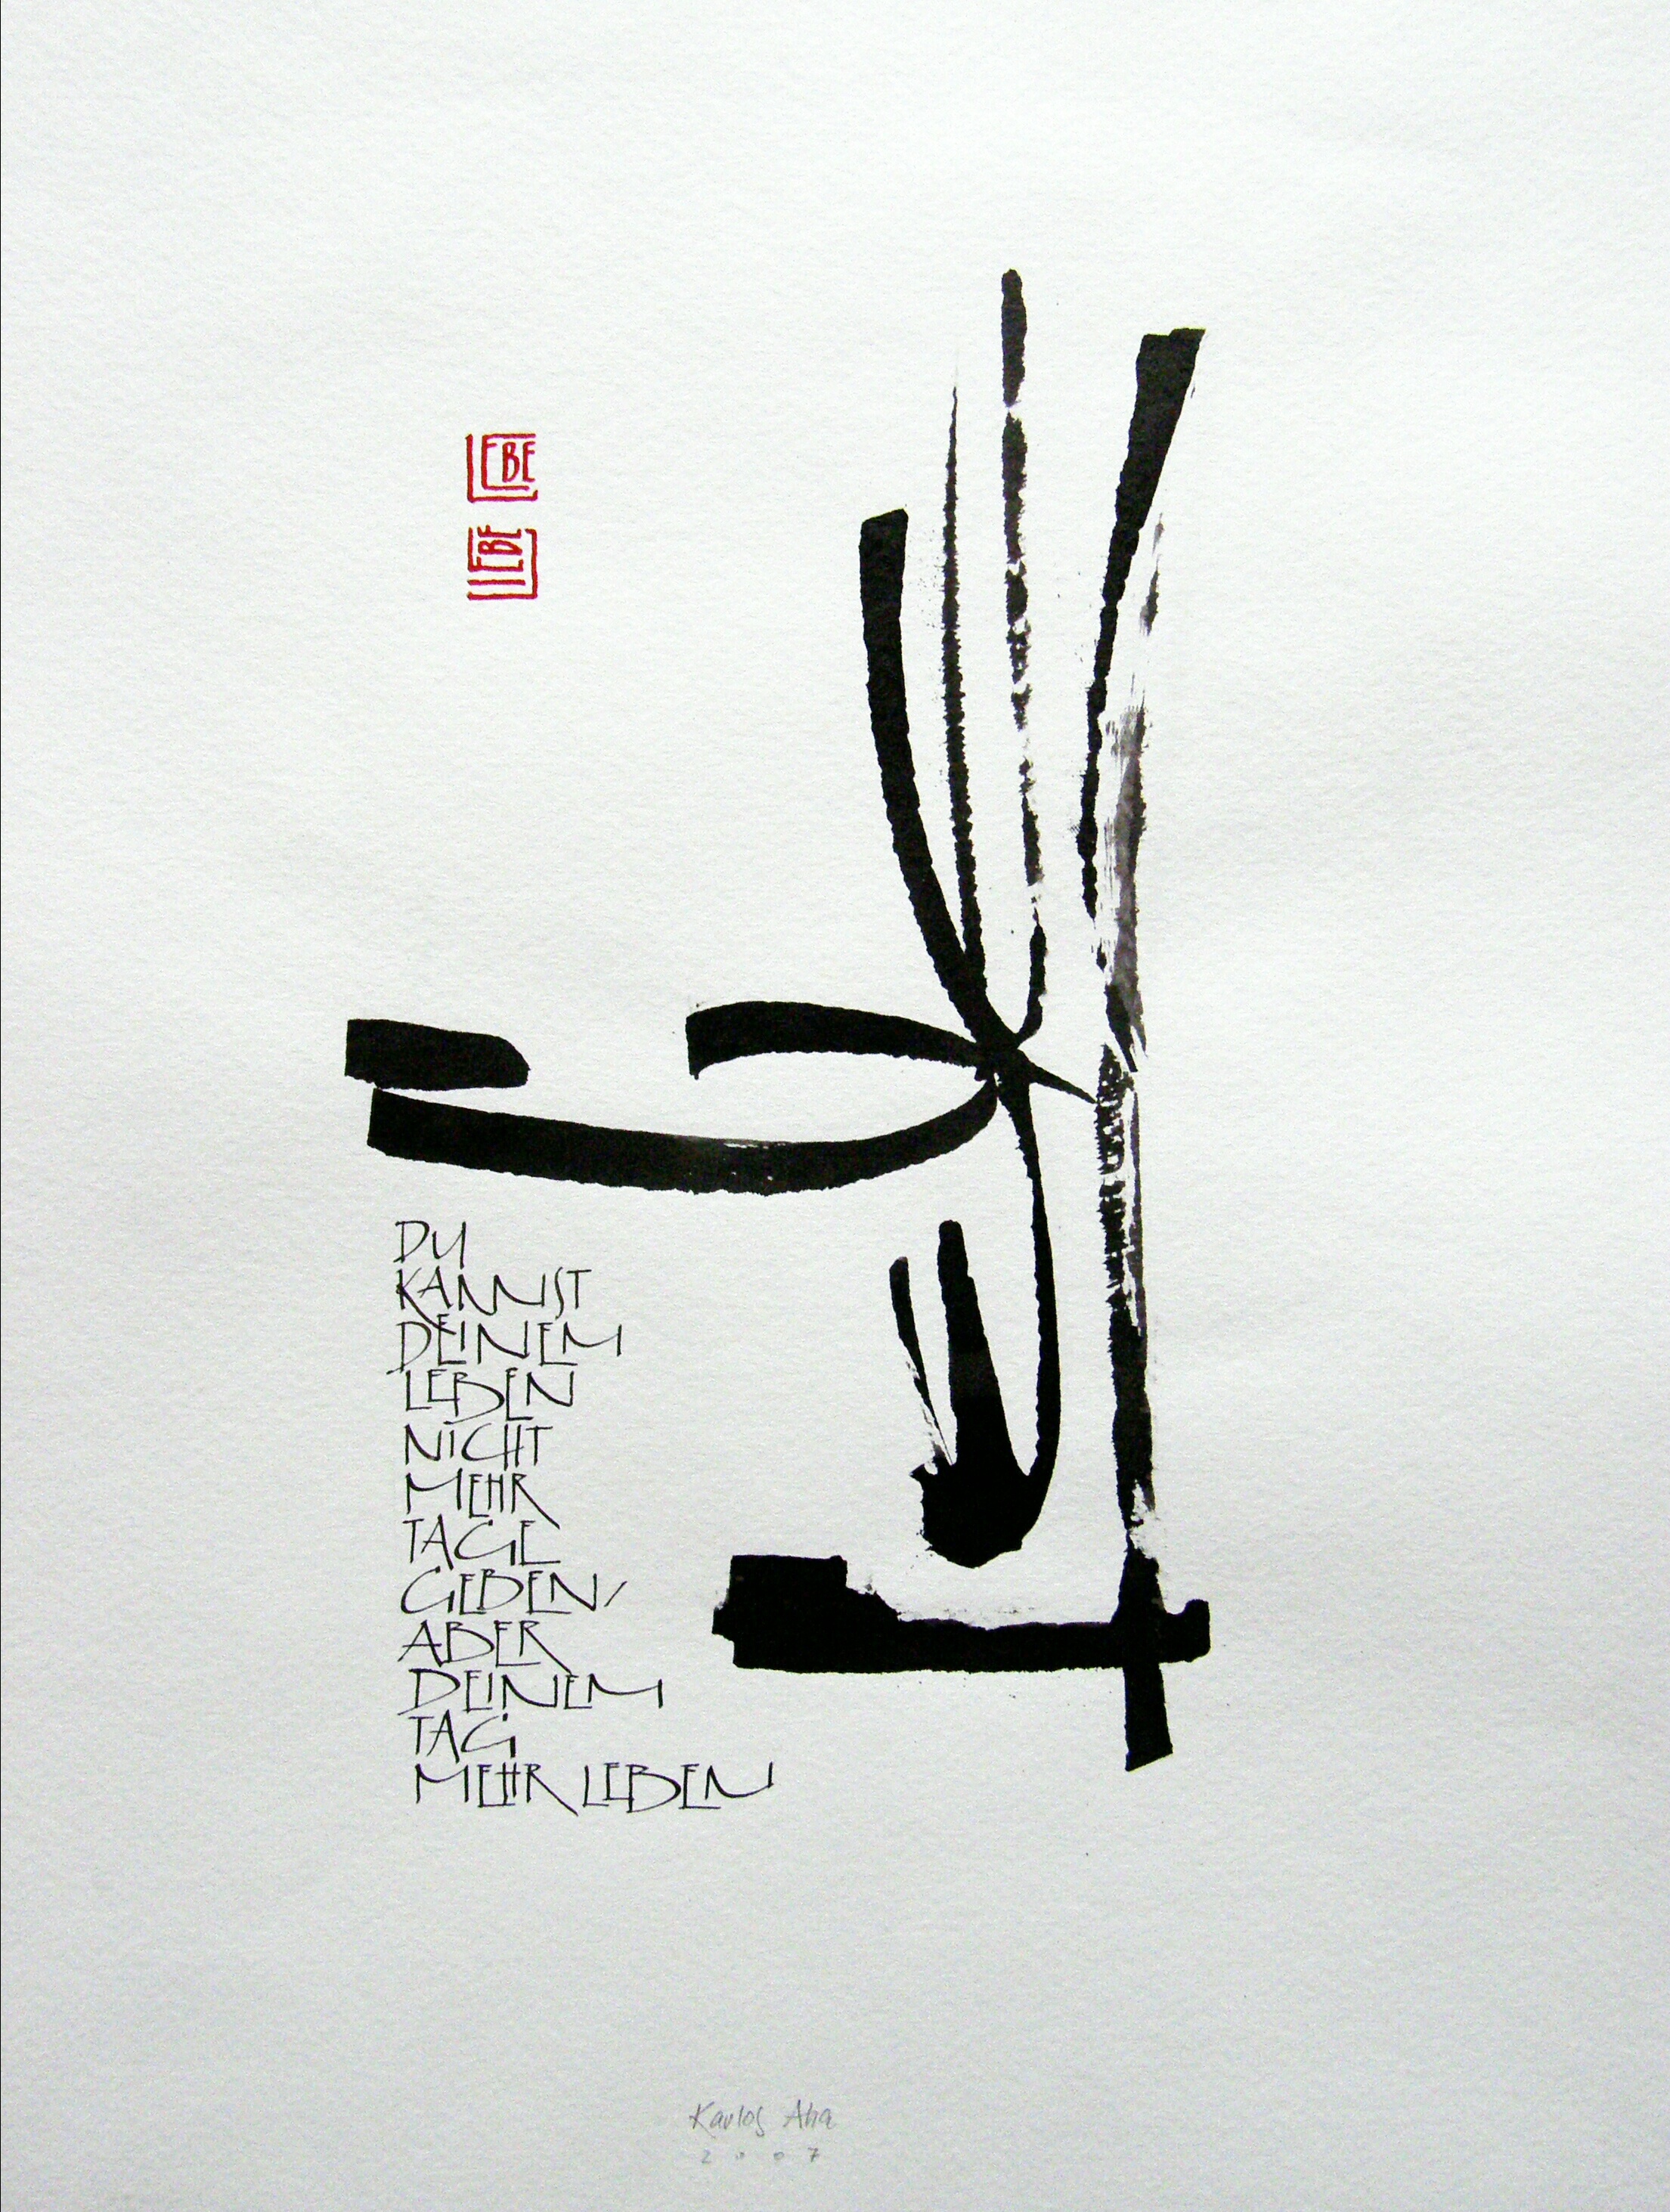 LEBE
LEBE
DU
KANNST
DEINEM
LEBEN
NICHT
MEHR
TAGE
GEBEN,
ABER
DEINEM
TAG
MEHR LEBEN
Karlos Aha
2007